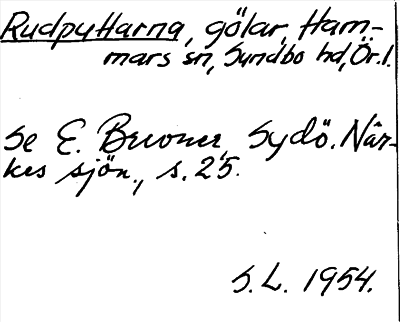 Rudputtarna, gölar, Ham-
mars sn, Sundbo hd, Ör. l.
Se E. Bruoner, Sydö. När-
kes sjön., s. 25.
S. L. 1954.